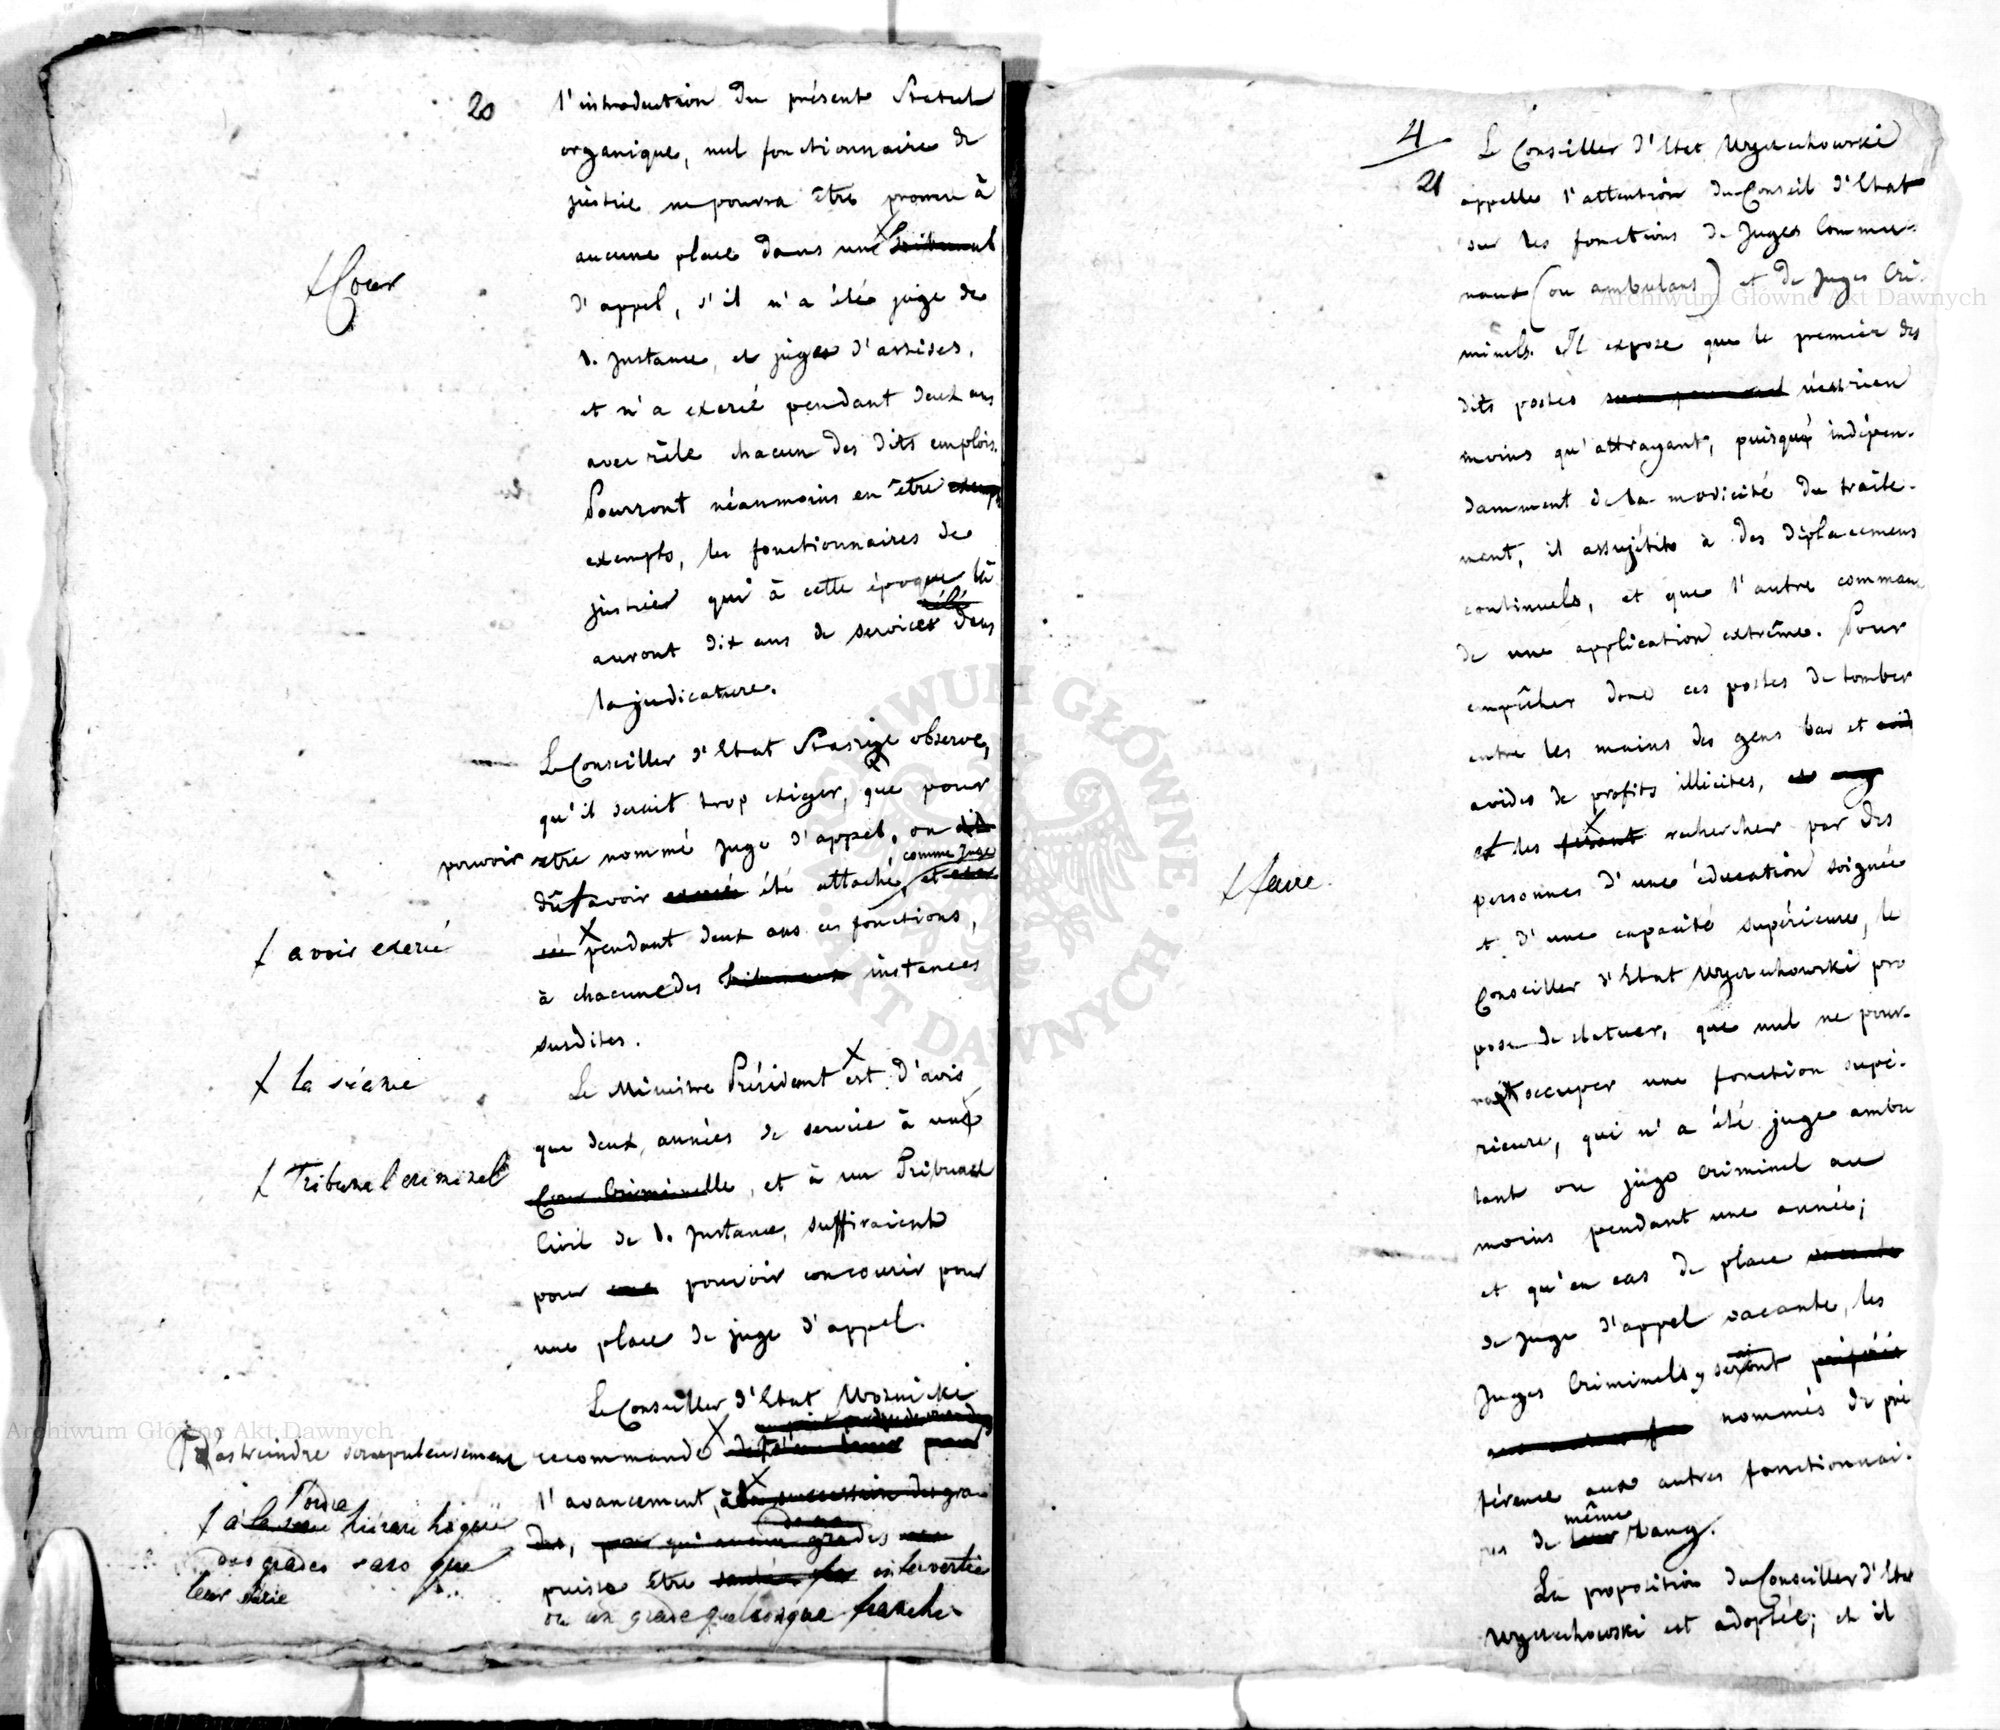 20
l'introduction du présent Statut
organique, nul fonctionnaire de
justice ne pourra être promu à
aucune place dans une Tribunal
ƚ Cour
d'appel, s'il n'a été juge de
1. Instance, et juge d'assises,
et n'a exercé pendant deux ans
avec zèle chacun des dits emplois.
Pourront néanmoins en être
exempts, les fonctionnaires de
justice qui à cette époque là
auront dix ans de service dans
la judicature.
Le Conseiller d'Etat Staszyc observe,
qu'il serait trop exiger, que pour
pouvoir etre nommé juge d'appel, on
comme Juge
dût avoir exercé été attaché, et
pendant deux ans ces fonctions,
ƚ avoir exercé
à chacune des Tribunaux instances
susdites.
Le Ministre Président est d'avis
ƚ la séance
que deux années de service à une
Cour Criminelle, et à un Tribunal
ƚ Tribunal criminel
Civil de 1. Instance, suffiraient
pour pouvoir concourir pour
une place de juge d'appel.
Le Conseiller d'Etat Woznicki
recommande
d'astreindre scrupuleusement
l'avancement, à la succession des gra
des, qui aucun grades
l'ordre
ƚ à la hiérarchique
des grades sans que
leur série
puisse être intervertie
ou un grade quelconque franchi
4
21
Le Conseiller d'Etat Wyczechowski
appelle l'attention du Conseil d'Etat
sur les fonctions de Juges Commu-
naux (ou ambulans) et de Juges Cri-
minels. Il expose que le premier des
dits postes n'est rien
moins qu'attrayant, puisque indépen-
damment de la modicité du traite-
ment, il assujétit à des déplacemens
continuels, et que l'autre comman
de une application extrême. Pour
empêcher donc ces postes de tomber
entre les mains des gens bas et
avides de profits illicites,
et les faisant rechercher par des
ƚ faire
personnes d'une éducation soignée
et d'une capacité supérieure, le
Conseiller d'Etat Wyczechowski pro
pose de statuer, que nul ne pour-
rait occuper une fonction supé-
rieure, qui n'a été juge ambu
lant ou juge criminel au
moins pendant une année;
et qu'en cas de place vacante
de Juge d'appel vacante, les
Juges Criminels y seront préférés
nommés de pré
férence aux autres fonctionnai-
même
res de leur rang.
La proposition du Conseiller d'Etat
Wyczechowski est adoptée; et il